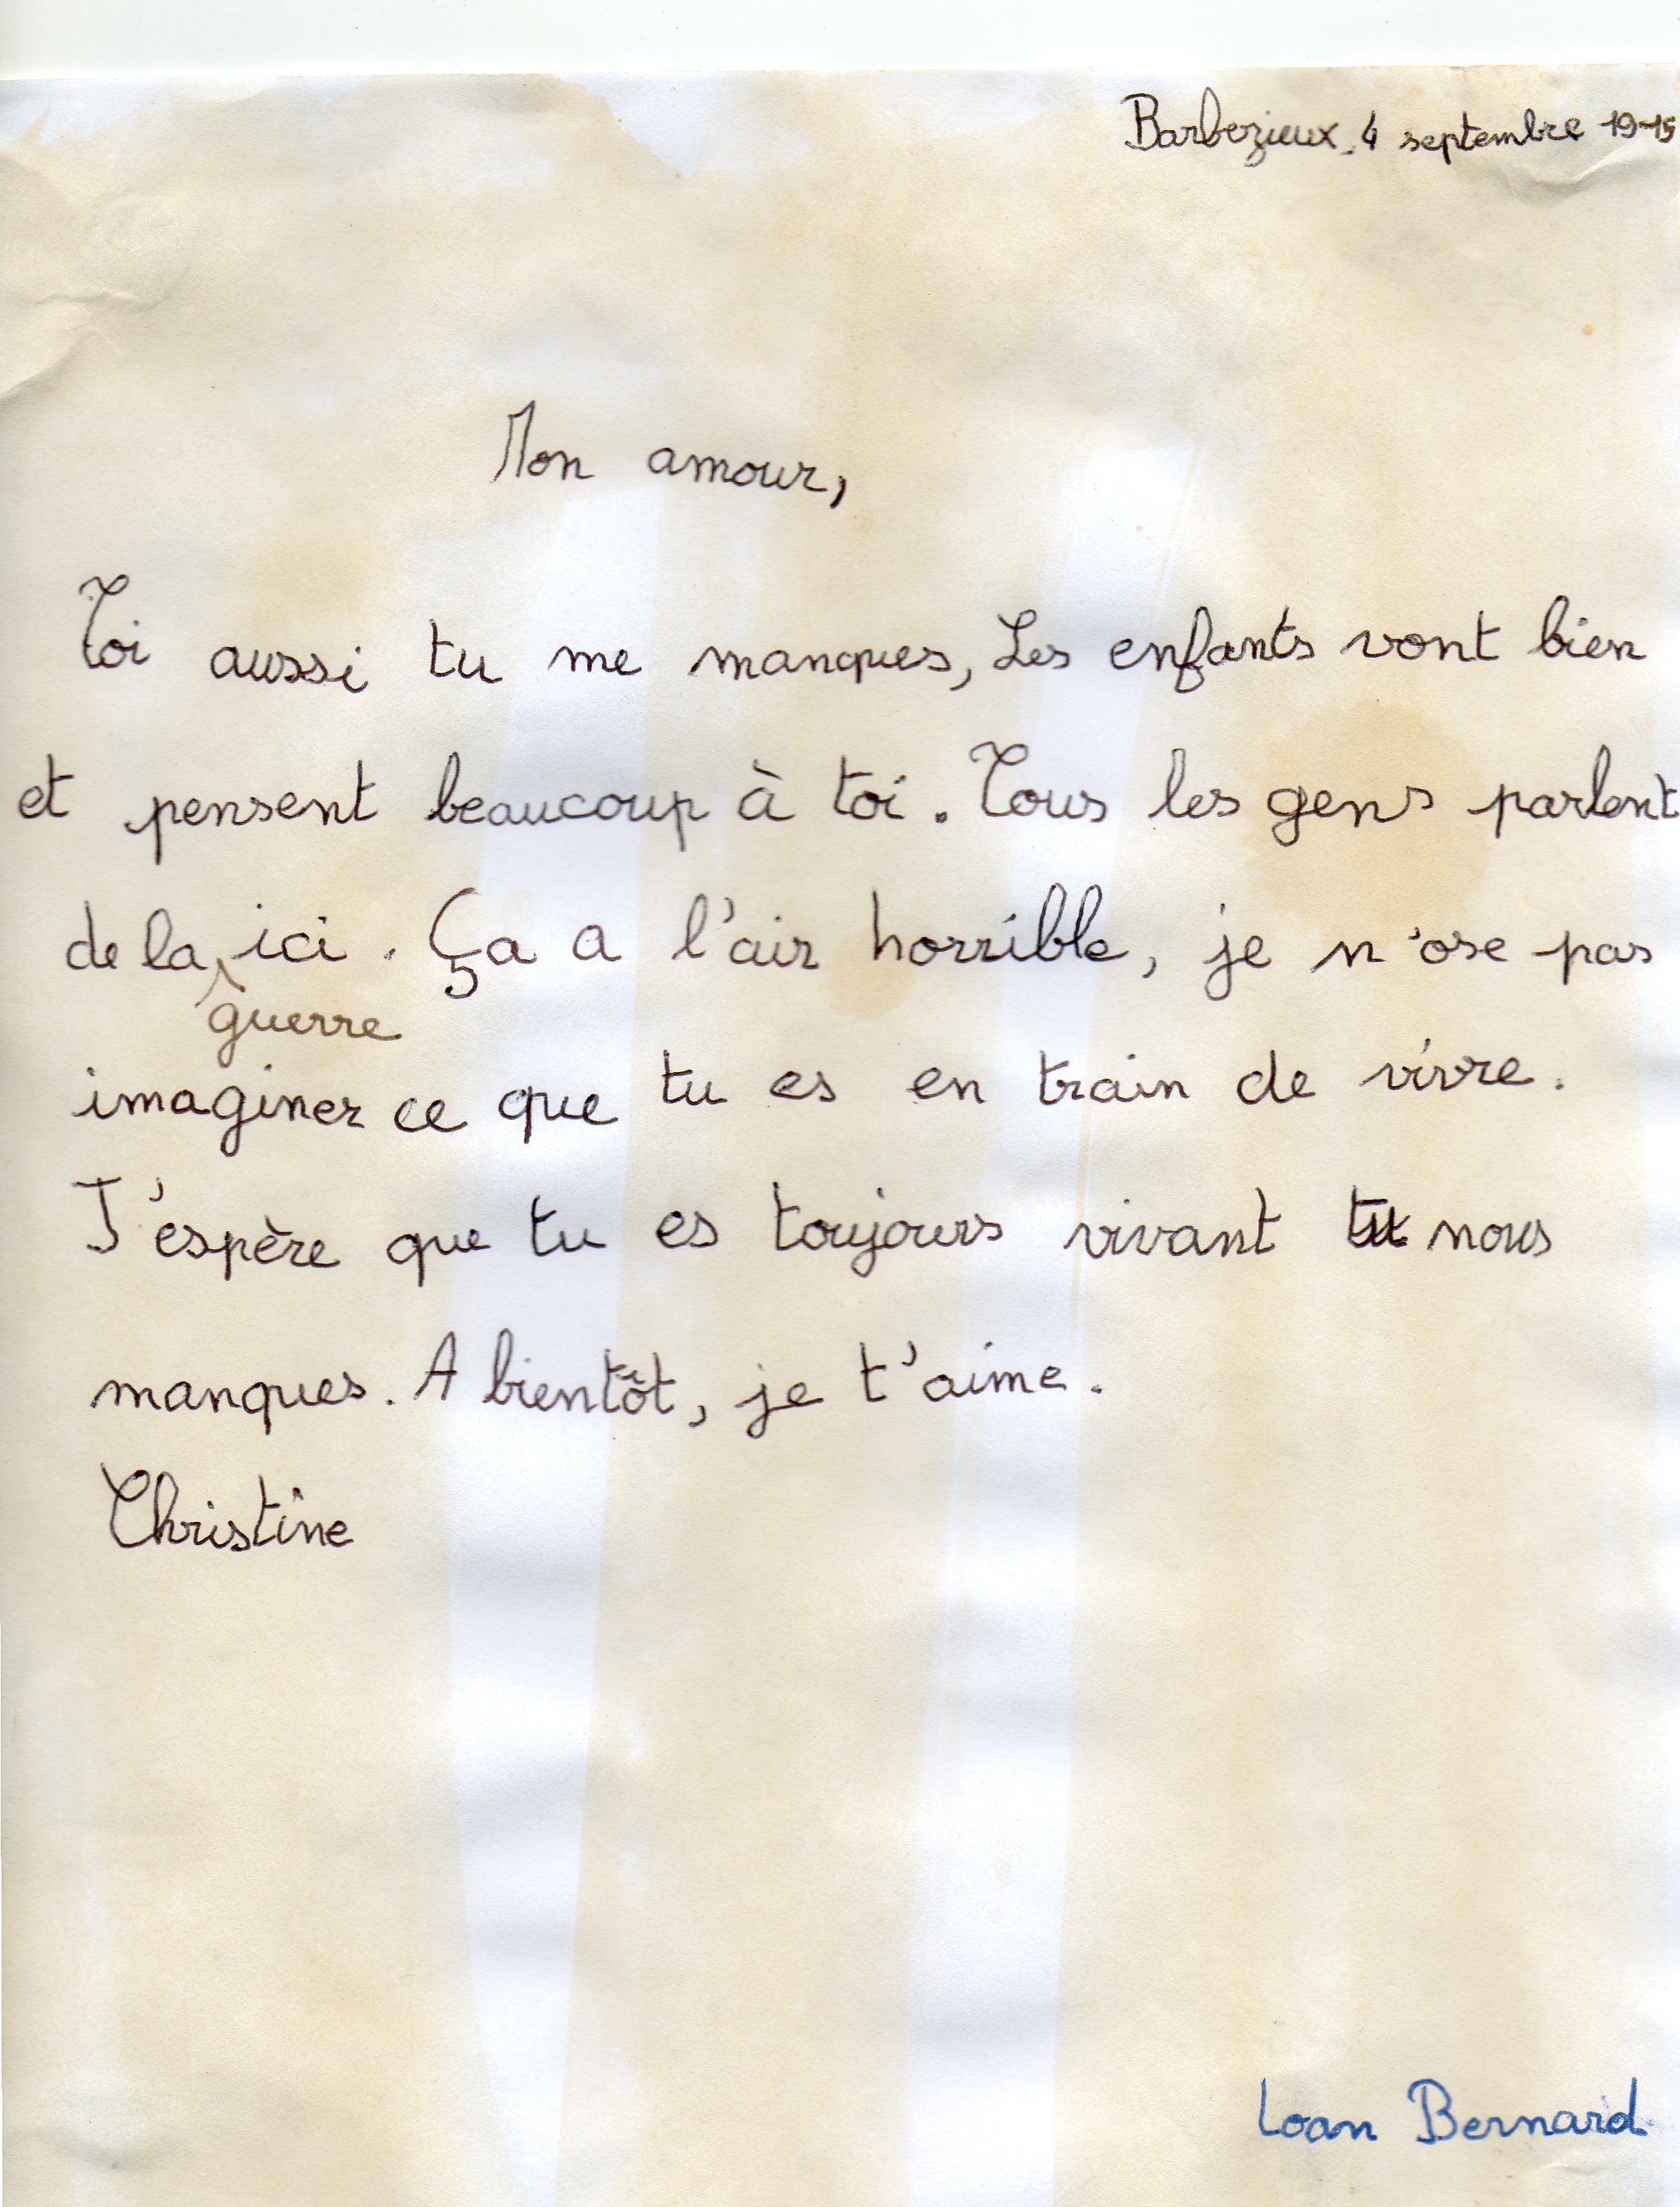 Barbezieux, 4 septembre 1915
Mon amour,
Toi aussi tu me manques, Les enfants vont bien
et pensent beaucoup à toi. Tous les gens parlent
de la guerre ici. Ça a l'air horrible, je n'ose pas
imaginer ce que tu es en train de vivre.
J'espère que tu es toujours vivant tu nous
manques. A bientôt, je t'aime.
Christine
Loan Bernard